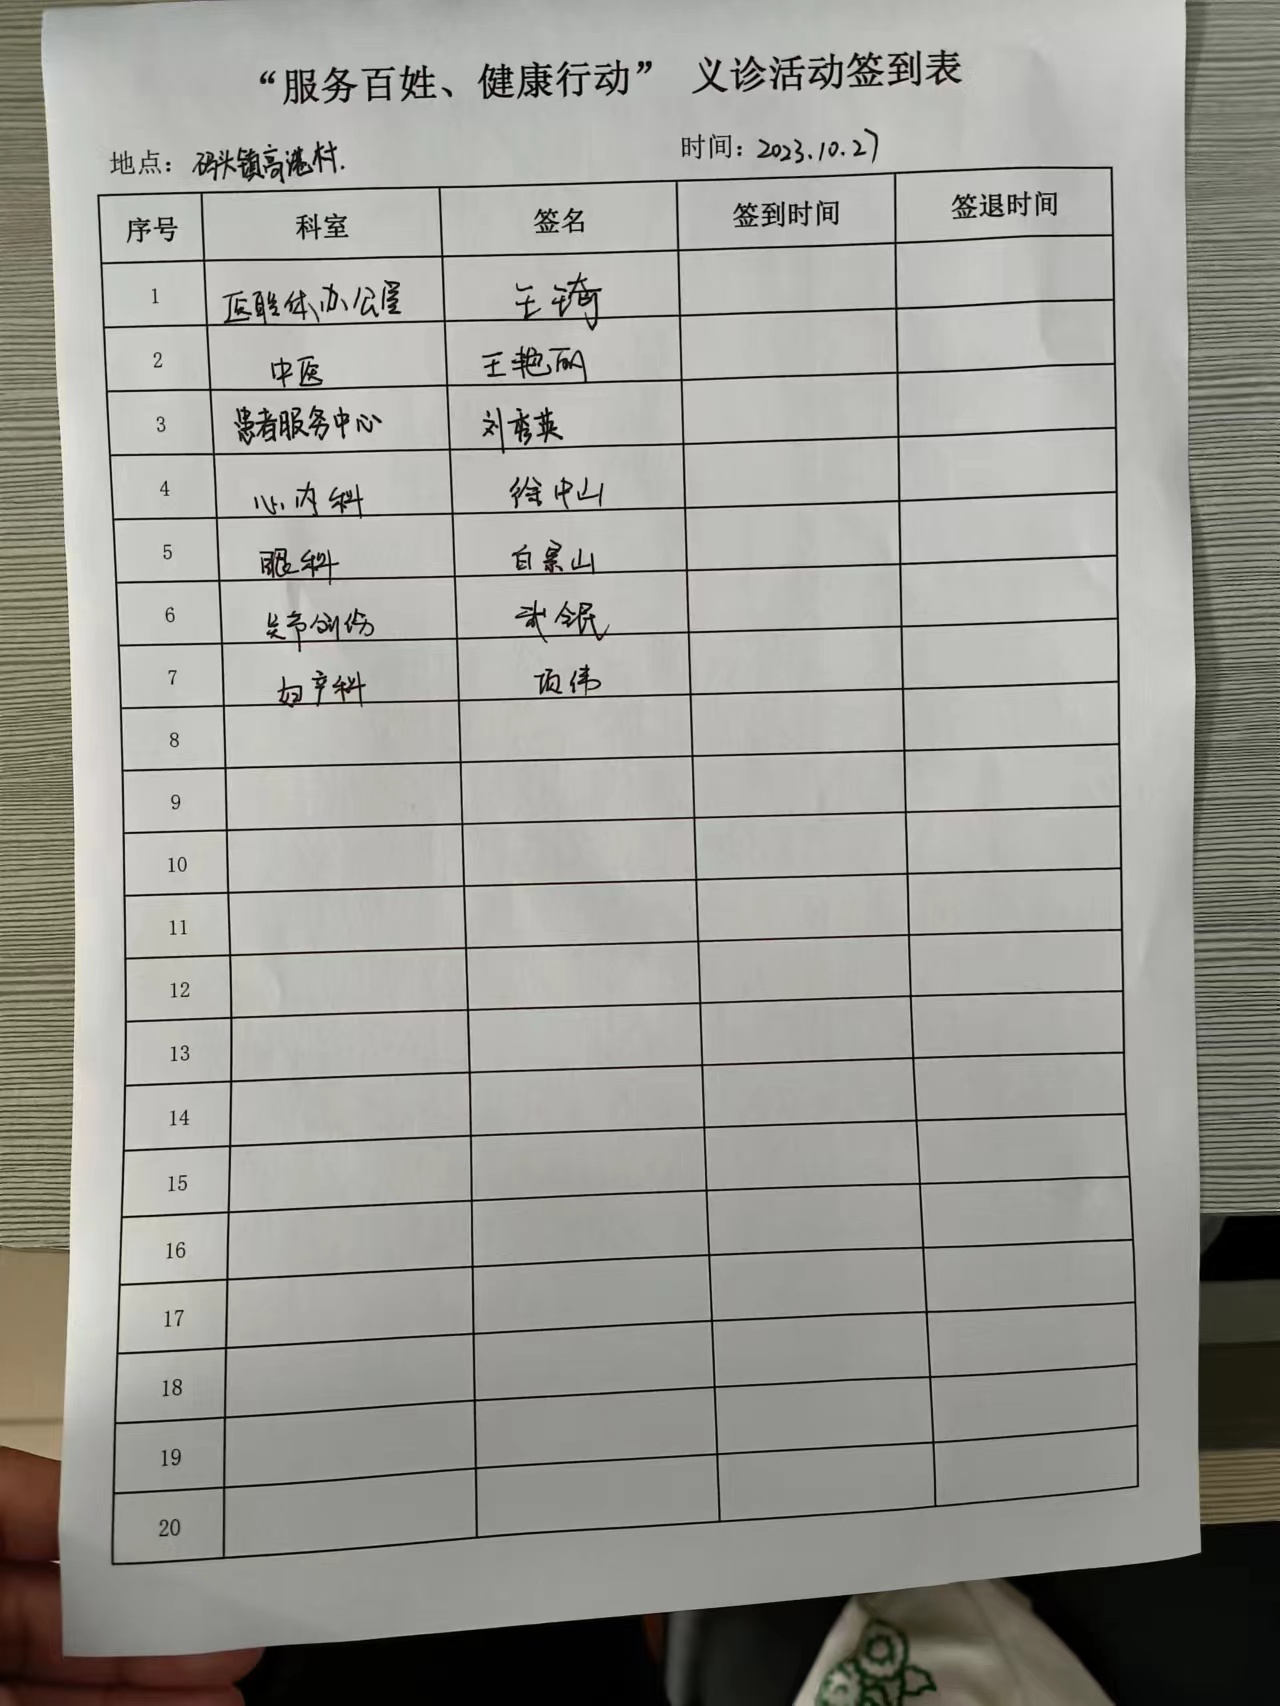 “服务百姓、健康行动” 义诊活动签到表
地点：码头镇高港村. 时间：2023.10.27
序号 科室 签名 签到时间 签退时间
1 医联体办公室 王琦
2 中医 王艳丽
3 患者服务中心 刘秀英
4 心内科 徐中山
5 眼科 白景山
6 关节创伤 武全民
7 妇产科 项伟
8
9
10
11
12
13
14
15
16
17
18
19
20